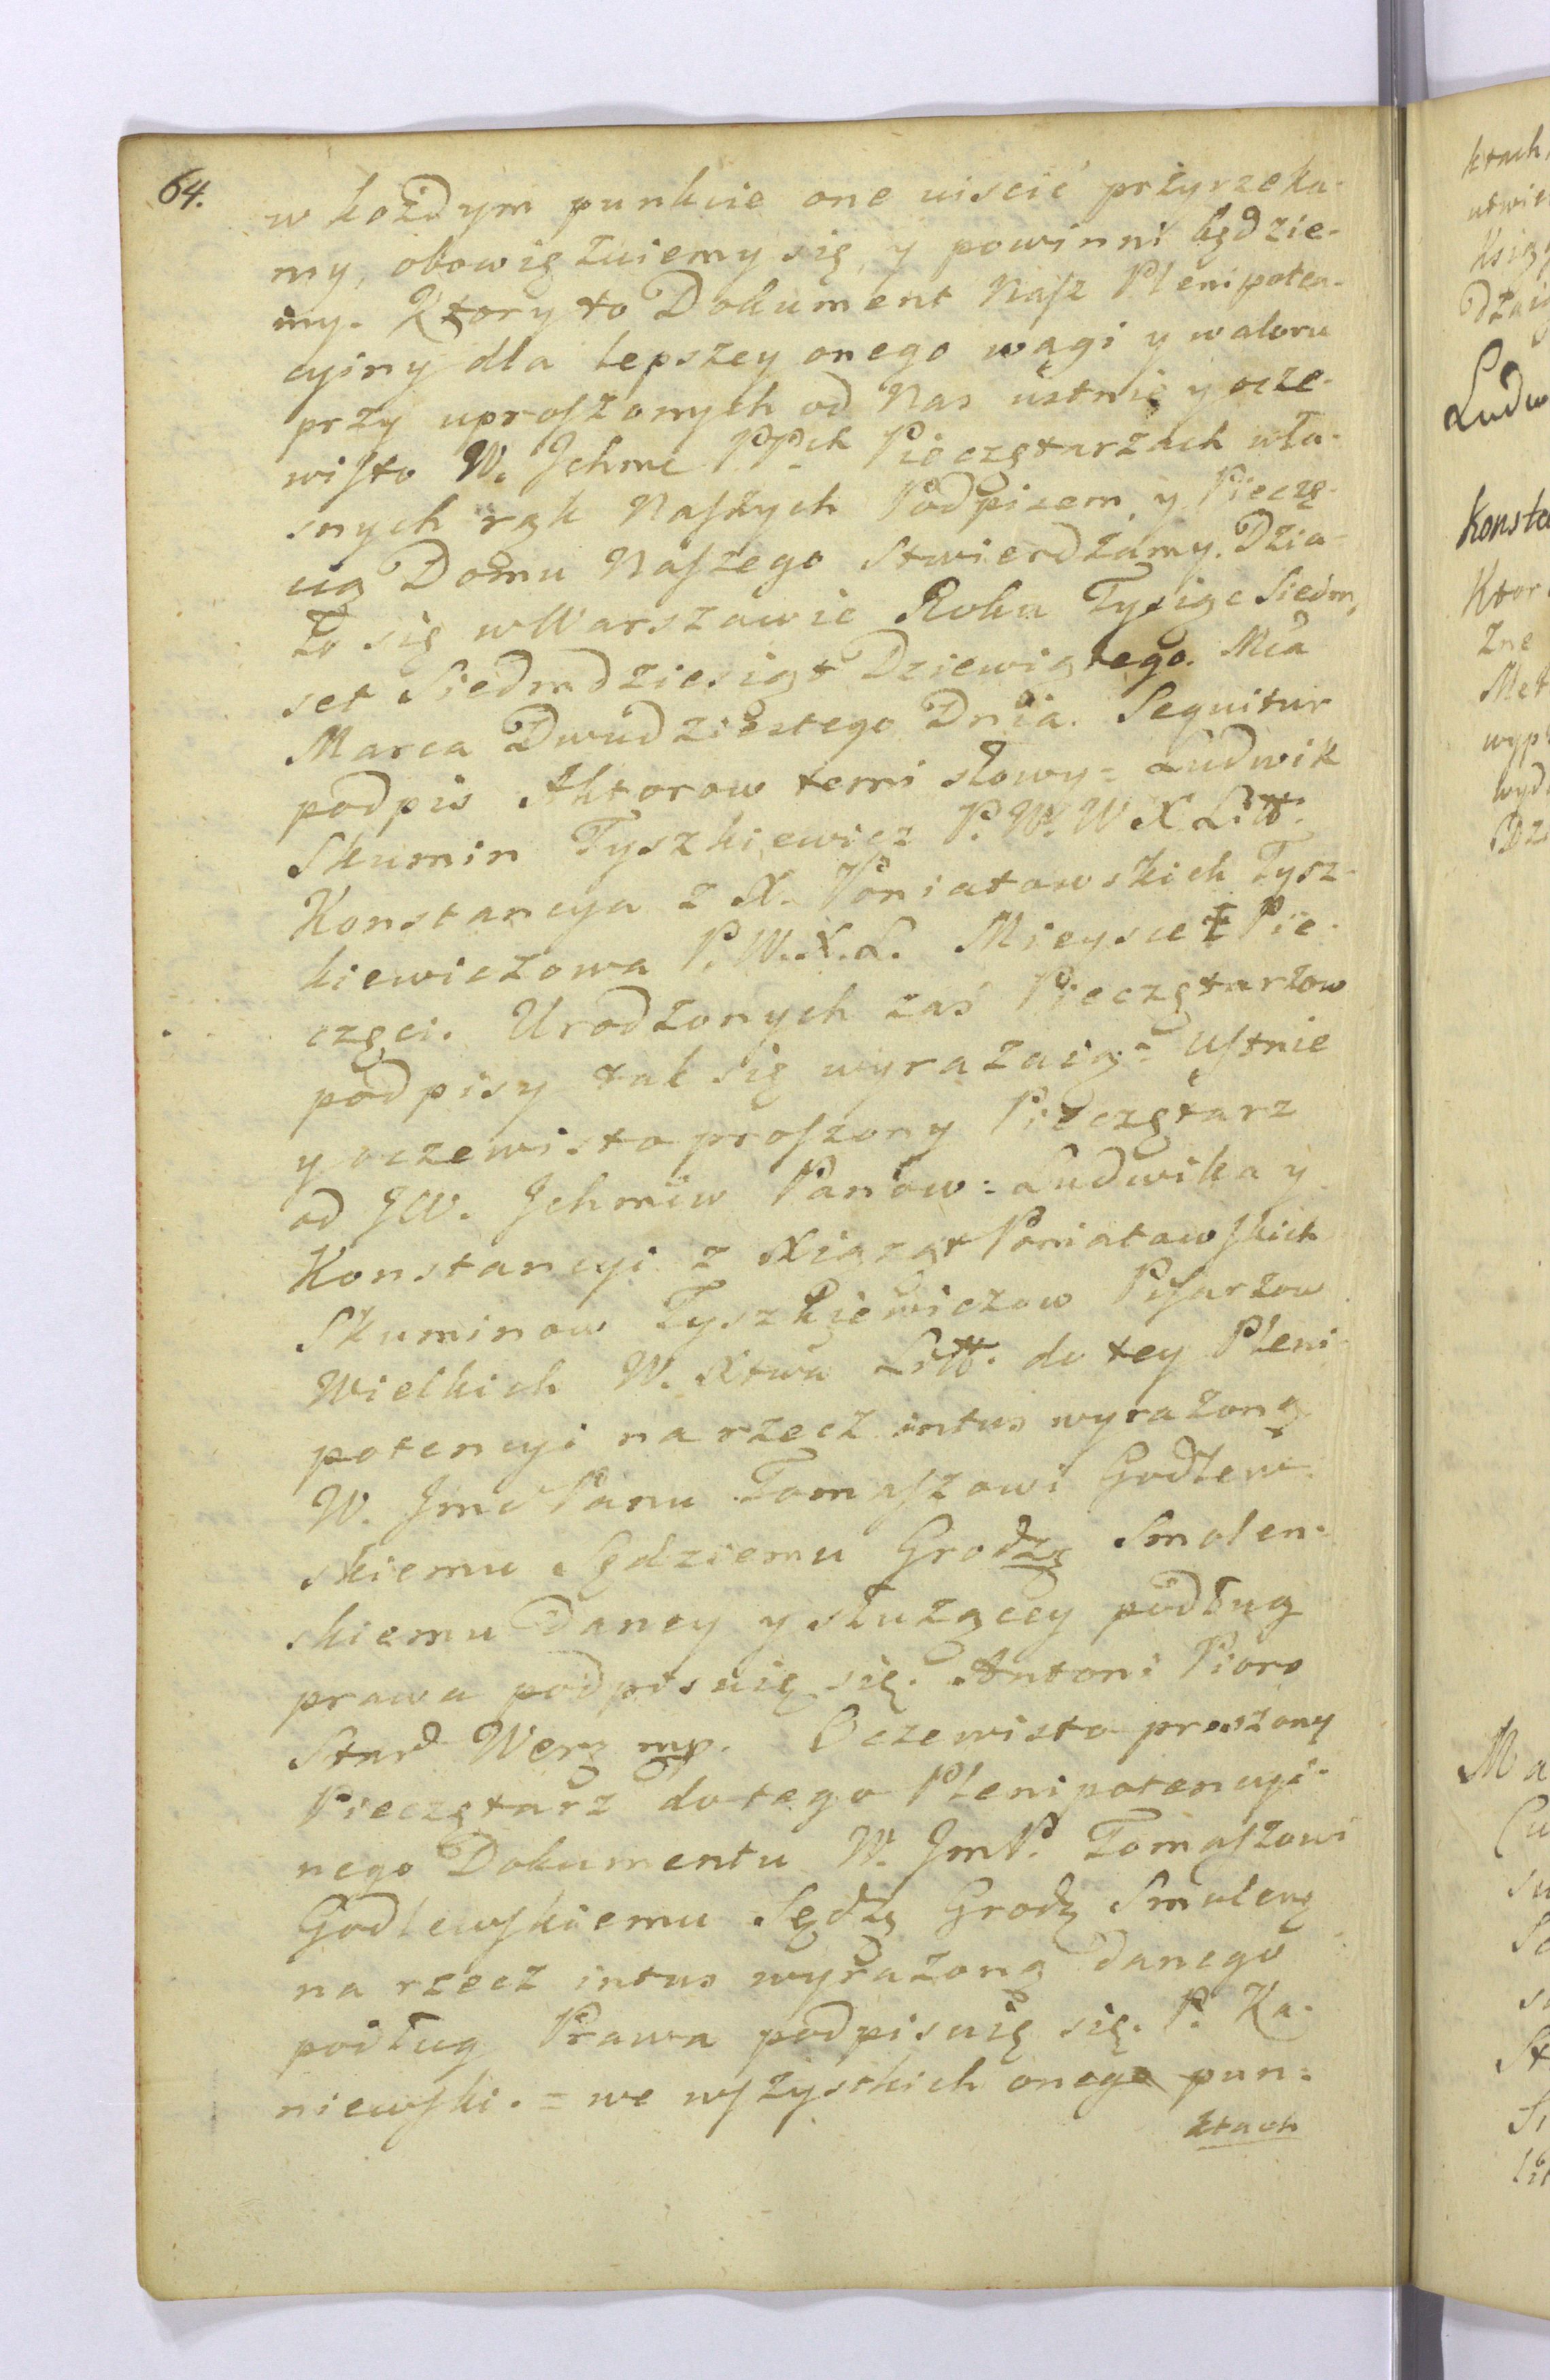 64.
w każdym punkcie one uiscić przyrzeka-
my, obowięzuiemy się, y powinni będzie-
my. Ktory to Dokument Nasz Plenipoten-
cyiny dla lepszey onego wagi y waloru
przy uproszonych od Nas ustnie y ocze-
wisto W. Ichmc PPch Pieczętarzach wła-
snych rąk Naszych Podpisem y Pieczę-
cią Domu Naszego stwierdzamy. Dzia-
ło się w Warszawie Roku Tysiąc Siedm,
set Siedmdziesiąt Dziewiątego. Mca
Marca Dwudziestego Dnia. Sequitur
podpis Aktorow temi słowy = Ludwik
Skumin Tyszkiewicz P. W. W X Litt.
Konstancya z X. Poniatowskich Tysz-
kiewiczowa P. W. X. L. Mieysce Pie-
częci. Urodzonych zaś Pieczętarzow
podpisy tak się wyrazaią = Ustnie
y oczewisto proszony Pieczętarz
od JW. Ichmciw Panów: Ludwika y
Konstancyi z Xiążąt Poniatowskich
Skuminow Tyszkiewiczow Pisarzow
Wielkich W. Xtwa Litt. do tey Pleni-
potencyi na rzecz intus wyrazoną
W. Jmć Panu Tomaszowi Godlew-
skiemu Sędziemu Grodzę Smolen-
skiemu Daney y służącey podług
prawa podpisuię się. Antoni Pioro
Stard Werz mp. Oczewisto proszony
Pieczętarz do tego Plenipotencyi-
nego Dokumentu W. JmP. Tomaszowi
Godlewskiemu Sędzę Grodz Smolenz
na rzecz intus wyrażoną danego
podług Prawa podpisuię się. P. Ka-
niewski. = we wszystkich onego pun-
ktach
ktach
Ludw
Konsta
Ktor
zne
Met
wyp
wyd
Dz
Ma